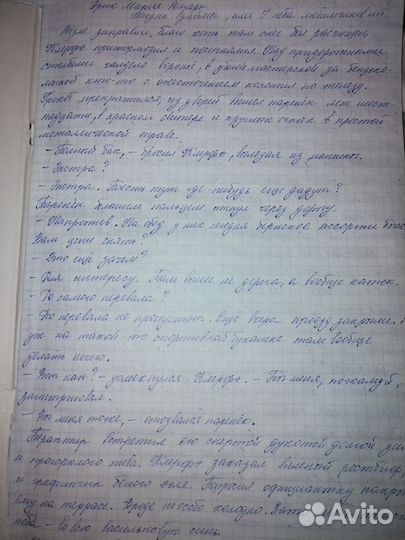 Эрих Мария Ремарк
Жизнь взаймы, или У неба любимчиков нет
заправки, благо хоть там снег был расчищен
Клерфэ притормозил и посигналил. Над придорожными
столбами галдело вороньё, в
кто-то с ожесточением колотил по железу.
Грохот прекратился, из дверей вышел паренёк лет шест-
надцати, в красном свитере и круглых очках в простой
металлической оправе.
- Полный бак, - бросил Клерфэ, вылезая из машины.
- Экстра?
- Экстра. Поесть тут где-нибудь ещё дадут?
Паренёк большим пальцем ткнул через дорогу.
- Напротив. На обед у них сегодня бернское ассорти было
Вам цепи снять?
- Это ещё зачем?
- Для интересу. Там выше не дорога, а вообще каток.
- До самого перевала?
- До перевала не пропустят. Ещё вчера проезд закрыли. А
уж на такой-то спортивной букашке там вообще
делать нечего.
- Вот как? - усмехнулся Клерфэ. - Ты меня, пожалуй,
заинтриговал.
- Вы меня тоже, - отозвался паренёк.
Трактир встретил его спёртой духотой долгой зимы
и прогорклого пива. Клерфэ заказал вяленый ростбиф
и графинчик белого эгля. Попросил официантку накрыть
ему на террасе. Вроде не особо холодно. Зато
небо - во всю васильковую синь.
Avito